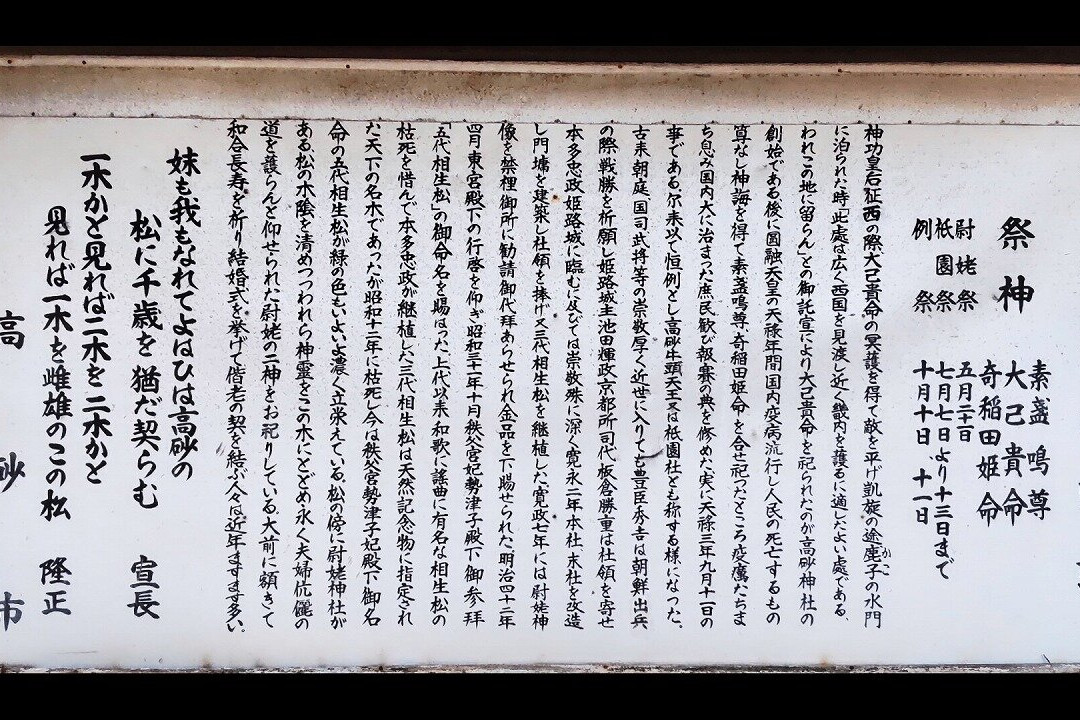 祭神
素盞嗚尊
大己貴命
奇稲田姫命
尉姥祭 五月二十一日
祇園祭 七月七日より十三日まで
例祭 十月十日、十一日
神功皇后征西の際大己貴命の冥護を得て敵を平げ凱旋の途鹿子の水門
かこ
に泊られた時「此處は広く西国を見渡し近く畿内を護るに適したよい處である、
われこの地に留らん」との御託宣により大己貴命を祀られたのが高砂神社の
創始である後に圓融天皇の天禄年間国内疫病流行し人民の死亡するもの
算なし神誨を得て素盞嗚尊、奇稲田姫命を合せ祀ったところ疫癘たちま
ち息み国内大に治まった庶民歓び報賽の典を修めた、実に天禄三年九月十一日の
事である、尓来以て恒例とし高砂牛頭天王又は祇園社とも称する様になった。
古来朝庭、国司武将等の崇敬厚く近世に入りても豊臣秀吉は朝鮮出兵
の際戦勝を祈願し姫路城主池田輝政京都所司代板倉勝重は社領を寄せ
本多忠政姫路城に臨むに及びては崇敬殊に深く寛永二年本社、末社を改造
し門墻を建築し社領を捧げ又三代相生松を継植した、寛政七年には尉姥神
像を禁裡御所に勧請御代拝あらせられ金品を下賜せられた、明治四十二年
四月東宮殿下の行啓を仰ぎ昭和三十一年十月秩父宮妃勢津子殿下御参拝
「五代相生松」の御命名を賜はった上代以来和歌に謡曲に有名な相生松の
枯死を惜んで本多忠政が継植した三代相生松は天然記念物に指定され
た天下の名木であったが昭和十二年に枯死し今は秩父宮勢津子妃殿下御名
命の五代相生松が緑の色もいよいよ濃く立栄えている、松の傍に尉姥神社が
ある、松の木陰を清めつつわれら神霊をこの木にとどめ永く夫婦伉儷の
道を護らんと仰せられた尉姥の二神をお祀りしている、大前に額きて
和合長寿を祈り結婚式を挙げて偕老の契を結ぶ人々は近年ますます多い。
妹も我もなれてよはひは高砂の
松に千歳を猶だ契らむ 宣長
一木かと見れば二木を二木かと
見れば一木を雌雄のこの松 隆正
高砂市